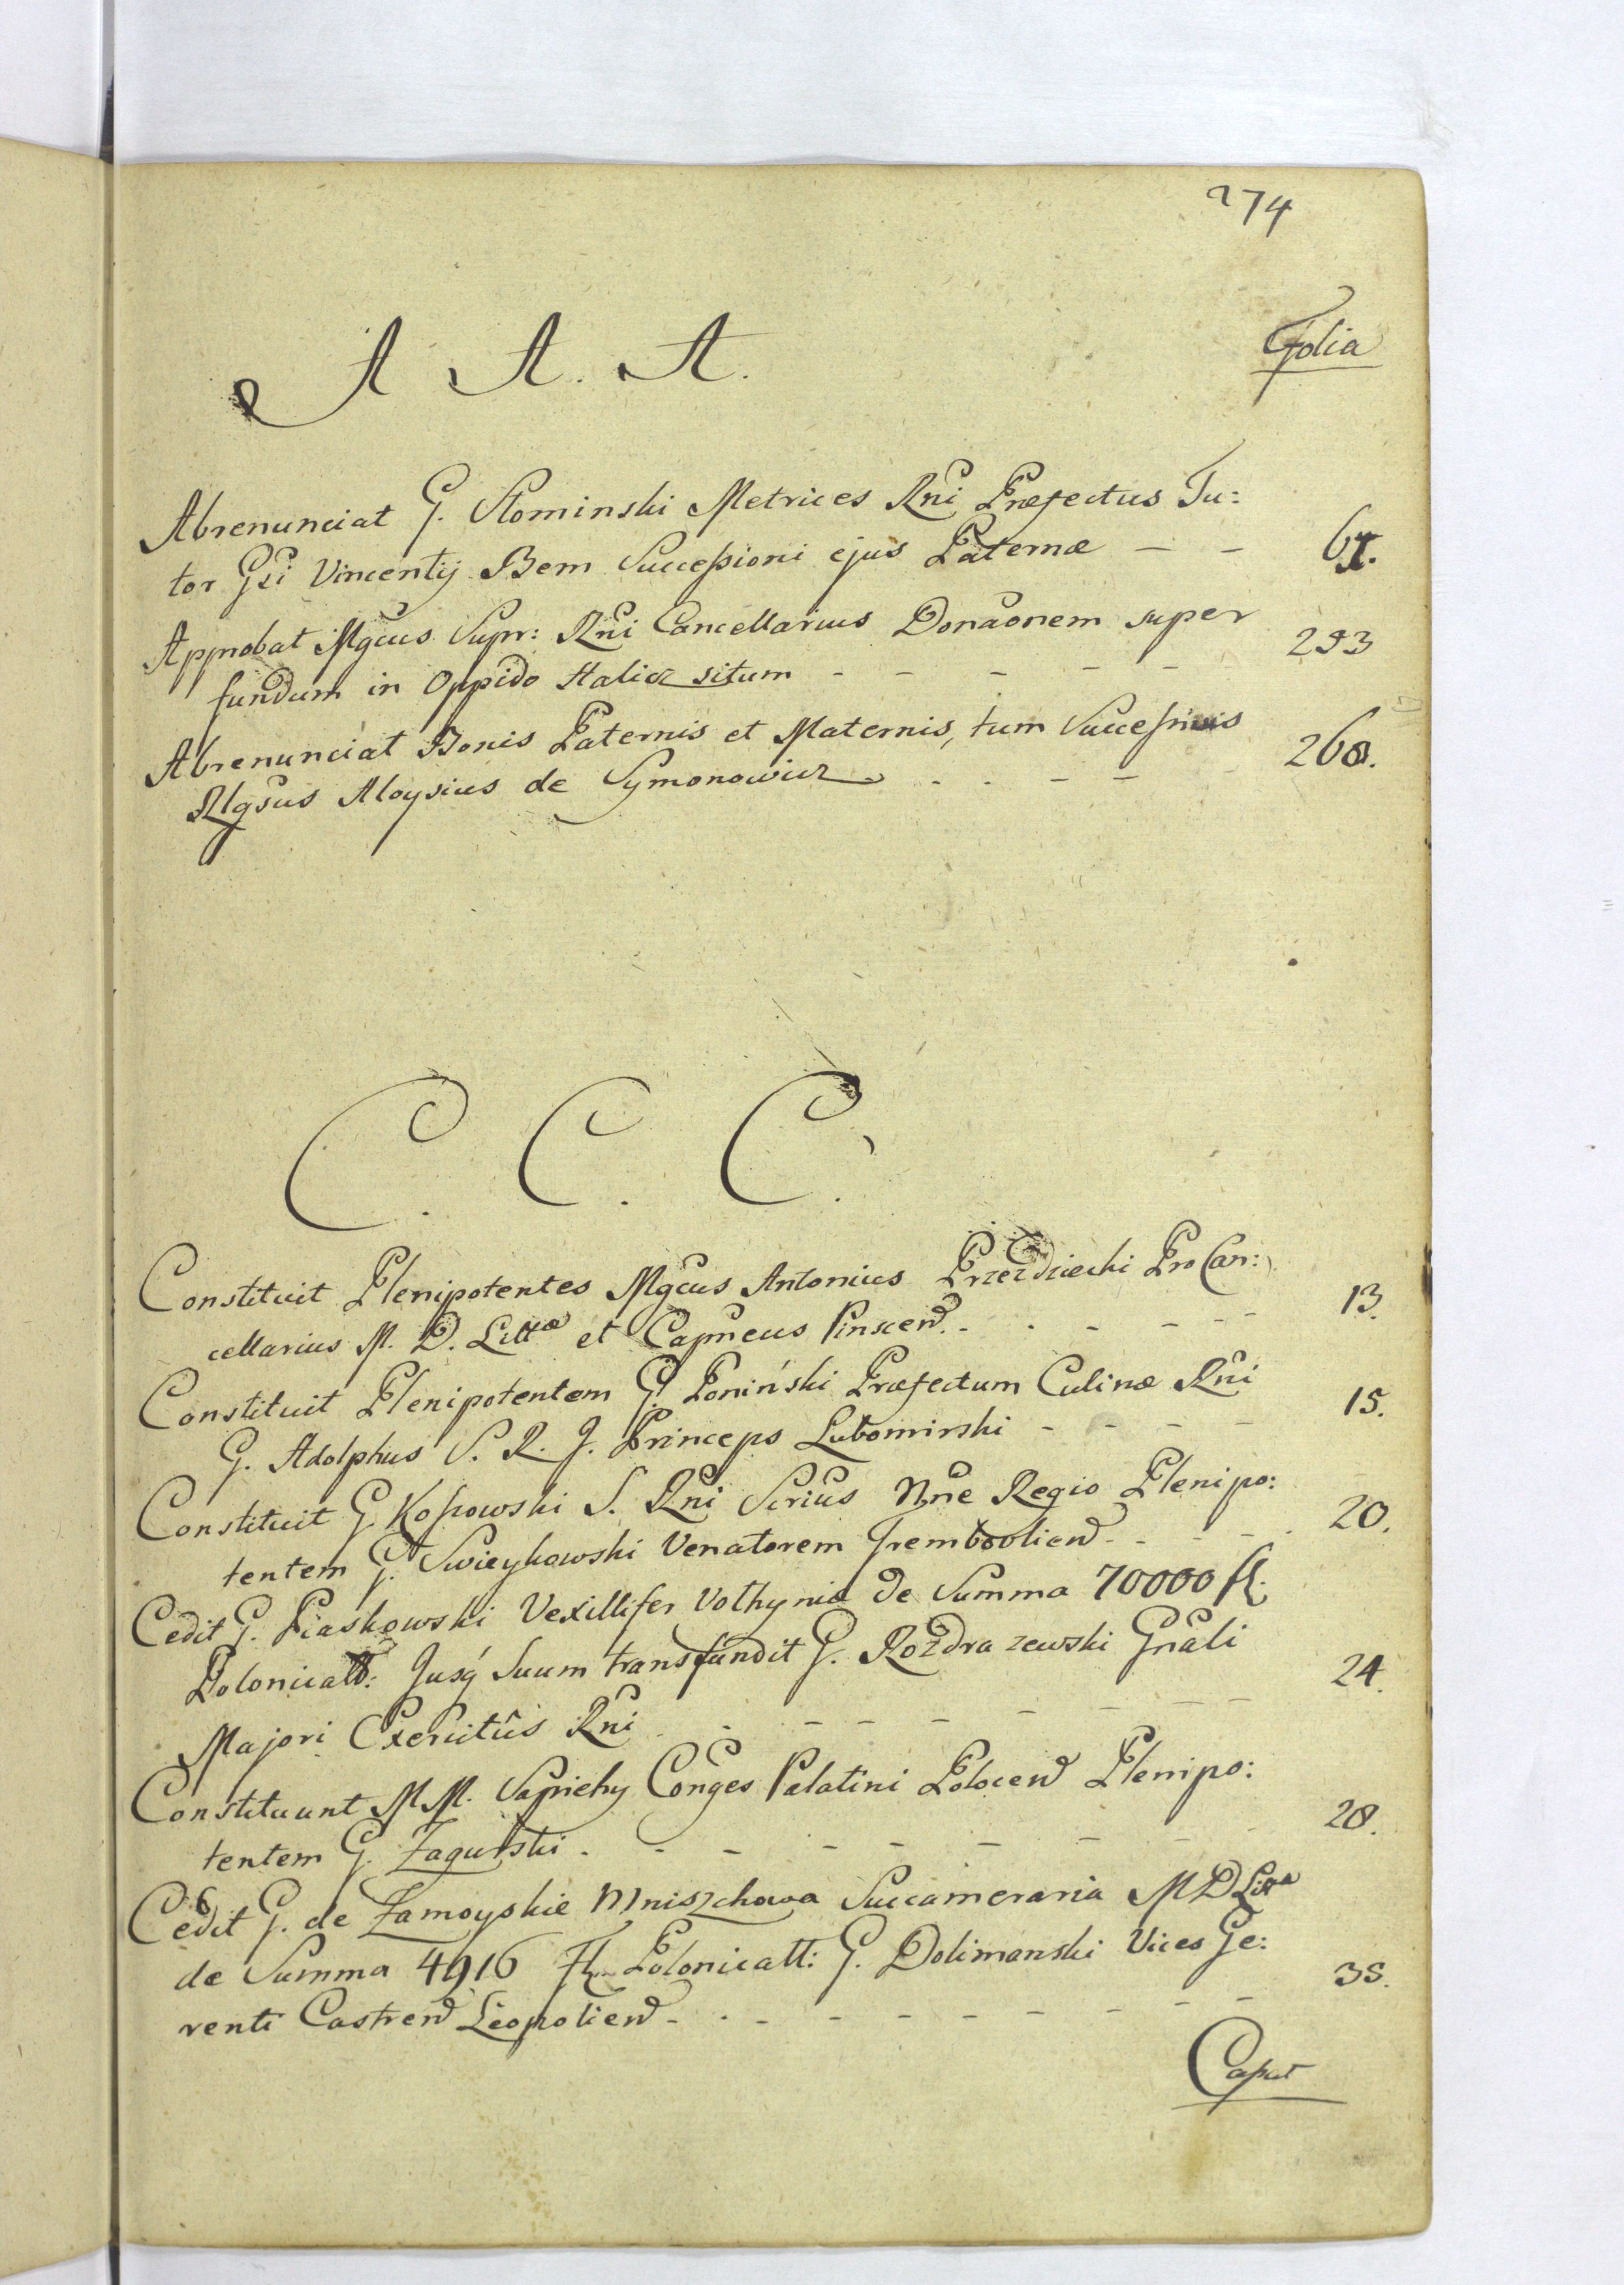 274
Folia
A A. A.
Abrenunciat G. Słominski Metrices Rni Præfectus Tu:
tor Gsi Vincentij Bem Successioni ejus Paternæ — — 67.
Approbat Mgcus Supr: Rni Cancellarius Donaonem super
fundum in Oppido Halicz situm - - - - - 293
Abrenunciat Bonis Paternis et Maternis, tum
Aloysius de Symonowicz - - - - 268.
C. C. C.
Constituit Plenipotentes Mgcus Antonius Przezdziecki ProCan:
cellarius M. D. Littæ et Capneus Pinscen. - - - - 13.
Constituit Plenipotentem G. Poniński Præfectum Culinæ Rni
G. Adolphus S. R. J. Princeps Lubomirski - - - - 15.
Constituit G. Kossowski S. Rni Scrius Nne Regio Plenipo:
tentem G. Swieykowski Venatorem Trembovlien - - - 20.
Cedit G. Piaskowski Vexillifer Volhyniæ de Summa 70000 fl.
Polonicall: Jusq Suum transfundit G. Rozdrazewski Gnali
Majori Exercitûs Rni - - - - - - - 24.
Constituunt MM. Sapiehy Conges Palatini Polocen Plenipo:
tentem G. Zagurski. - - - - - - - 28.
Cedit G. de Zamoyskie Mniszchowa Succameraria M D Litta
de Summa 4916 Fl. Polonicall: G. Dolimanski Vices Ge:
renti Castren Leopolien - - - - - - - - 35.
Caput